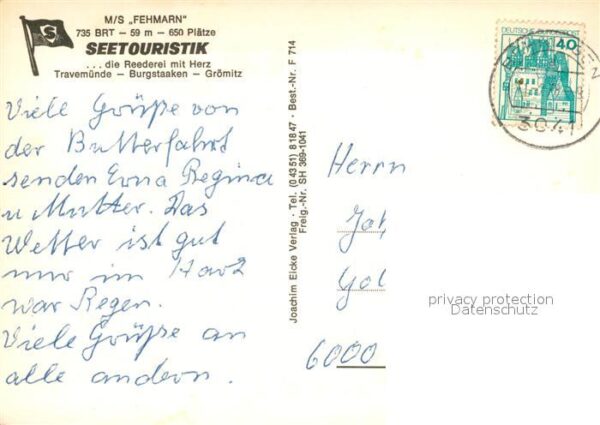 M/S „FEHMARN"
735 BRT – 59 m – 650 Plätze
SEETOURISTIK
... die Reederei mit Herz
Travemünde – Burgstaaken – Grömitz
Viele Grüße von
der Butterfahrt
senden Erna Regina
u Mutter. Das
Wetter ist gut
nur im Harz
war Regen.
Viele Grüße an
alle andern.
Joachim Eicke Verlag · Tel. (04351) 81847 · Best.-Nr. F 714
Freig.-Nr. SH 369-1041
DEUTSCHE BUNDESPOST
40
3041
Herrn
Joh
Gol
6000
privacy protection
Datenschutz